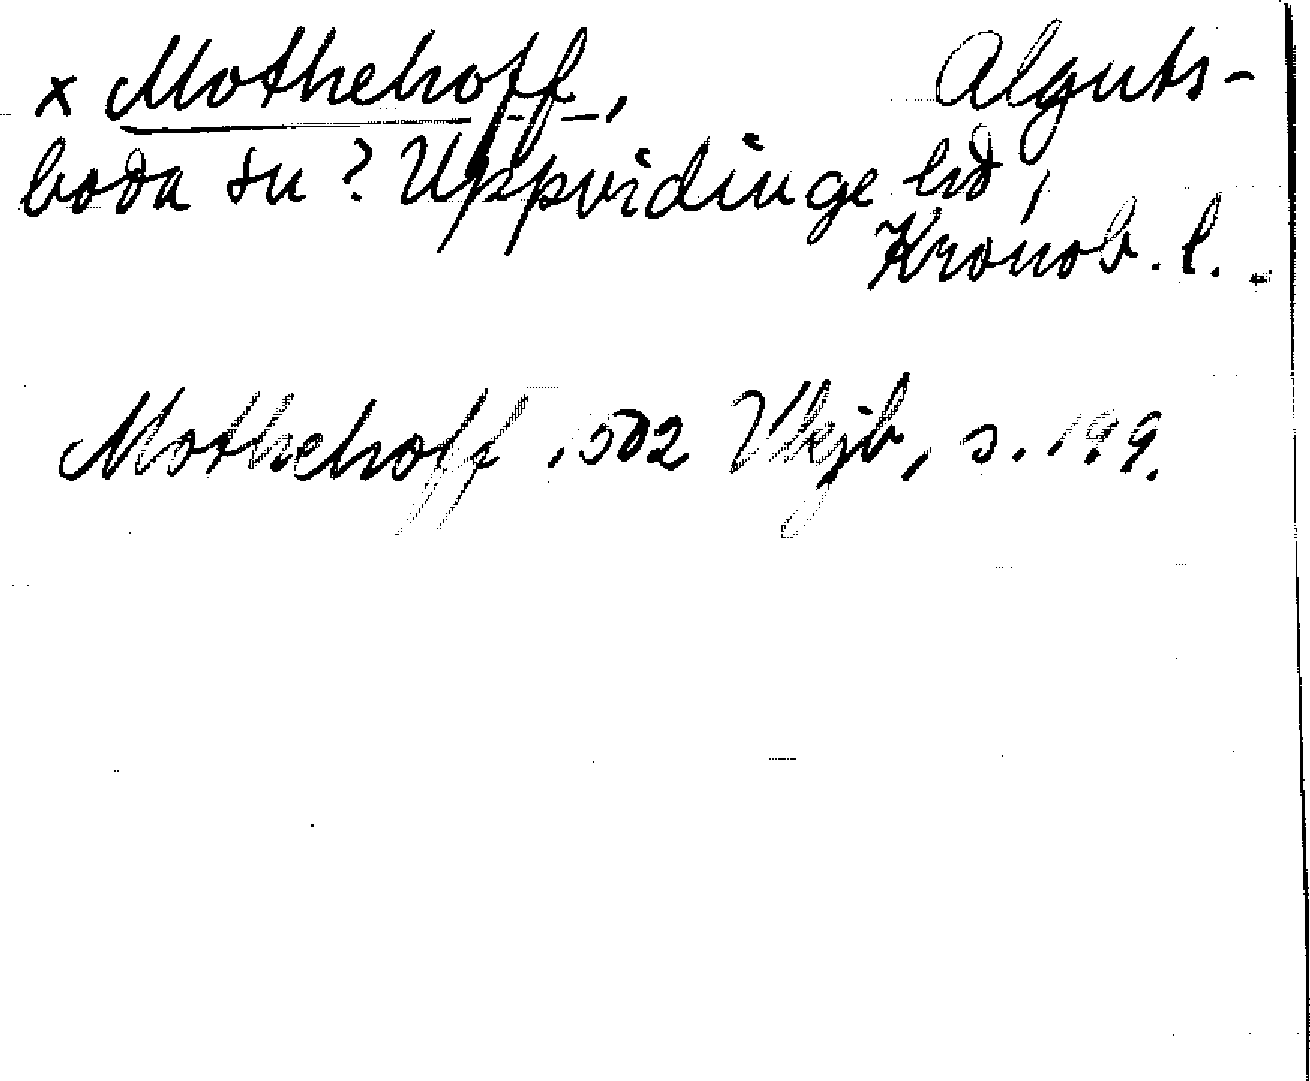 x Mothehoff, Alguts-
boda sn? Uppvidinge hd,
Kronob. l.
Mothehoff 1502 Vkjb, s. 199.